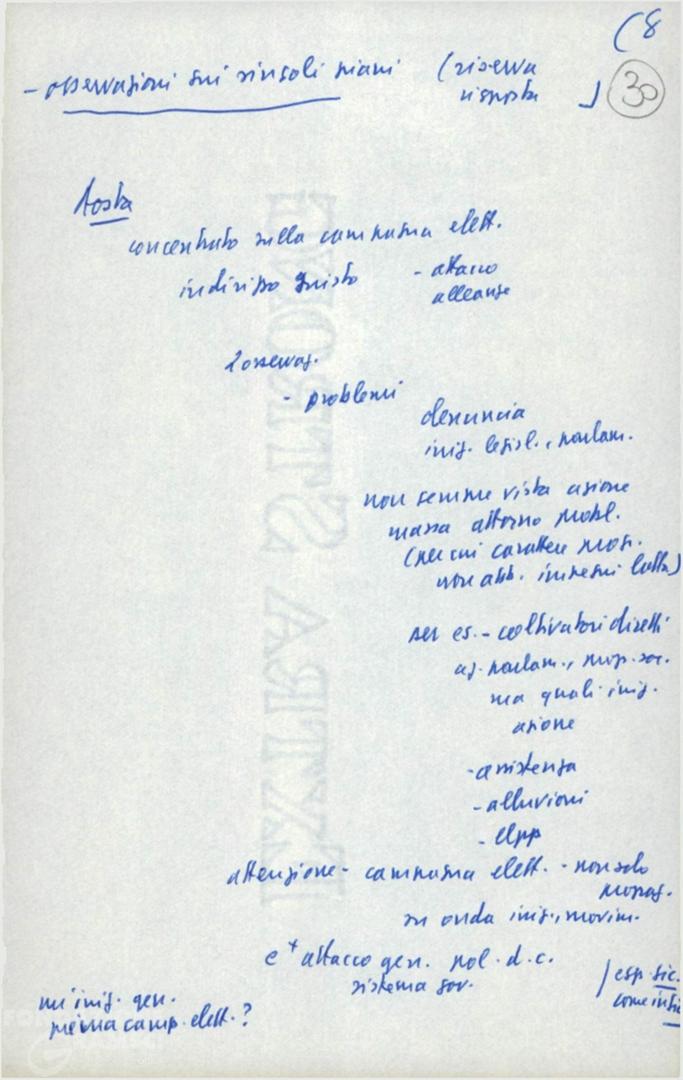 (8
30
- osservazioni sui singoli piani (riserva
risposta
Aosta
concentrato sulla campagna elett.
indirizzo giusto - attacco
alleanze
2 osservaz.
- problemi
denuncia
iniz. legisl., parlam.
non sempre vista azione
massa attorno probl.
(per cui carattere prop.
non abb. impegni lotta)
per es. - coltivatori diretti
az. parlam., prop. soc.
ma quali iniz.
azione
- assistenza
- alluvioni
- Elpp
attenzione - campagna elett. - non solo
propag.
su onda iniz., movim.
e + attacco gen. pol. d.c.
sistema gov.
esp. sic.
come in sic
iniz. gen.
prima camp. elett.?
EXTRA STRONG